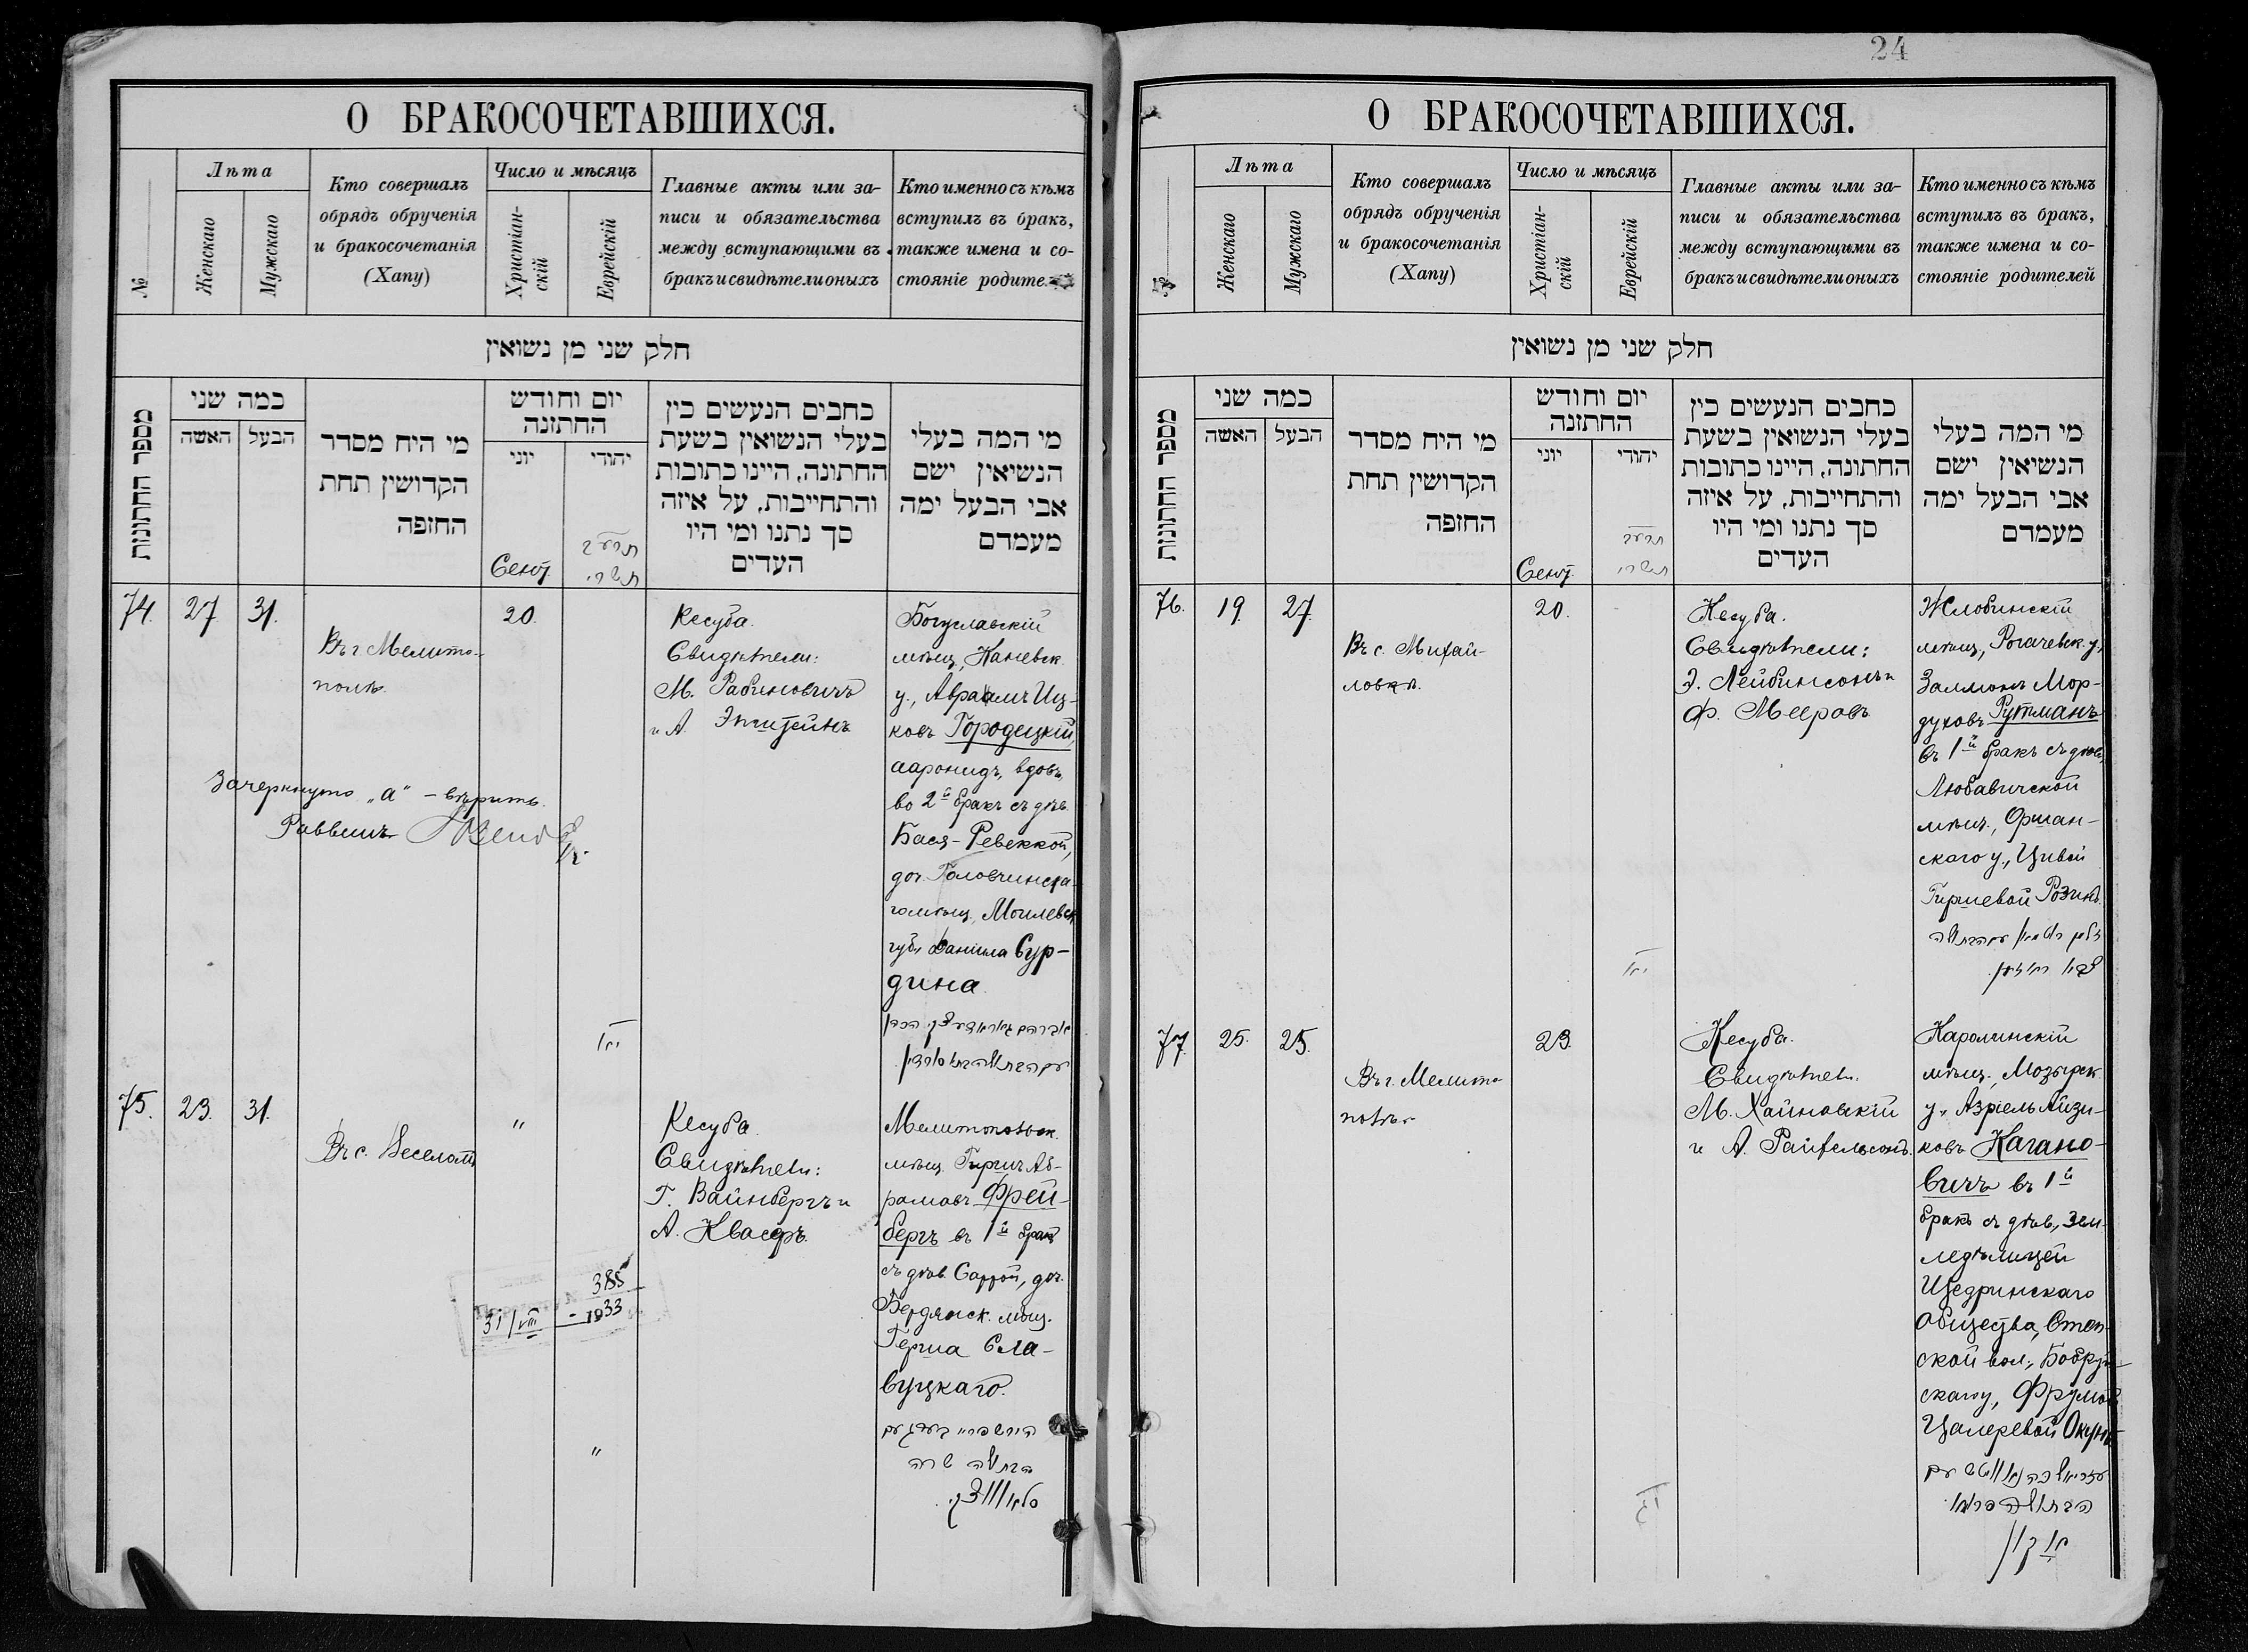 24
О БРАКОСОЧЕТАВШИХСЯ.
№
Лѣта
Женскаго
Мужскаго
Кто совершалъ
обрядъ обрученія
и бракосочетанія
(Хапу)
Число и мѣсяцъ
Христіан-
скій
Еврейскій
Главные акты или за-
писи и обязательства
между вступающими въ
бракъ и свидѣтели оныхъ
Кто именно съ кѣмъ
вступилъ въ бракъ,
также имена и со-
стояніе родите
חלק שני מן נשואין
מספר החתונות
כמה שני
האשה
הבעל
מי היח מסדר
הקדושין תחת
החזפה
יום וחודש
החתזנה
יוני
יהודי
Сент.
תרע״ג
תשרי
כחבים הנעשים כין
בעלי הנשואין בשעת
החתונה, היינו כתובות
והתחייבות, על איזה
סך נתנו ומי היו
העדים
מי המה בעלי
הנשיאין ישם
אבי הבעל ימה
מעמדם
74.
27
31.
Въ г. Мелито-
полѣ.
20.
Кесуба.
Свидѣтели:
М. Рабиновичъ
и А. Эпштейнъ
Богуславскій
мѣщ., Каневск.
у., Авраамъ Иц-
ковъ Городецкій,
ааронидъ, вдовъ,
во 2й бракъ съ дѣв.
Бася-Ревеккой,
доч. Головчинска-
го мѣщ., Могилевск.
губ., Даніила Сур-
дина.
Зачеркнуто „а“ – вѣрить.
Раввинъ
75.
23.
31.
Въ с. Веселомъ
"
Кесуба.
Свидѣтели:
Г. Вайнбергъ и
А. Квасъ.
Мелитопольск.
мѣщ. Гиршъ Аб-
рамовъ Фрей-
бергъ въ 1й бракъ
съ дѣв. Саррой, доч.
Бердянск. мѣщ.
Герша Сла-
вуцкаго.
385
31/VIII - 1933
"
הבתולה שרה
О БРАКОСОЧЕТАВШИХСЯ.
Лѣта
Женскаго
Мужскаго
Кто совершалъ
обрядъ обрученія
и бракосочетанія
(Хапу)
Число и мѣсяцъ
Христіан-
скій
Еврейскій
Главные акты или за-
писи и обязательства
между вступающими въ
бракъ и свидѣтели оныхъ
Кто именно съ кѣмъ
вступилъ въ бракъ,
также имена и со-
стояніе родителей
חלק שני מן נשואין
מספר החתונות
כמה שני
האשה
הבעל
מי היח מסדר
הקדושין תחת
החזפה
יום וחודש
החתזנה
יוני
יהודי
Сент.
תרע״ג
תשרי
כחבים הנעשים כין
בעלי הנשואין בשעת
החתונה, היינו כתובות
והתחייבות, על איזה
סך נתנו ומי היו
העדים
מי המה בעלי
הנשיאין ישם
אבי הבעל ימה
מעמדם
76.
19.
27.
Въ с. Михай-
ловкѣ.
20.
Кесуба.
Свидѣтели:
Э. Лейбинсонъ и
Ф. Мееровъ
Жлобинскій
мѣщ., Рогачевск. у.,
Залманъ Мор-
духовъ Рутманъ
въ 1й бракъ съ дѣв.,
Любавичской
мѣщ., Оршан-
скаго у., Цивой
Гиршевой Розинъ.
77.
25.
25.
Въ г. Мелито-
полѣ.
23.
Кесуба.
Свидѣтели:
М. Хайновскій
и А. Райхельсонъ.
Каролинскій
мѣщ., Мозырск.
у., Азріель Айзи-
ковъ Кагано-
вичъ въ 1й
бракъ съ дѣв., зем-
ледѣлицей
Щедринскаго
общества,
вол., Бобруй-
скаго у., Фрумой
Цалеревой Окунь